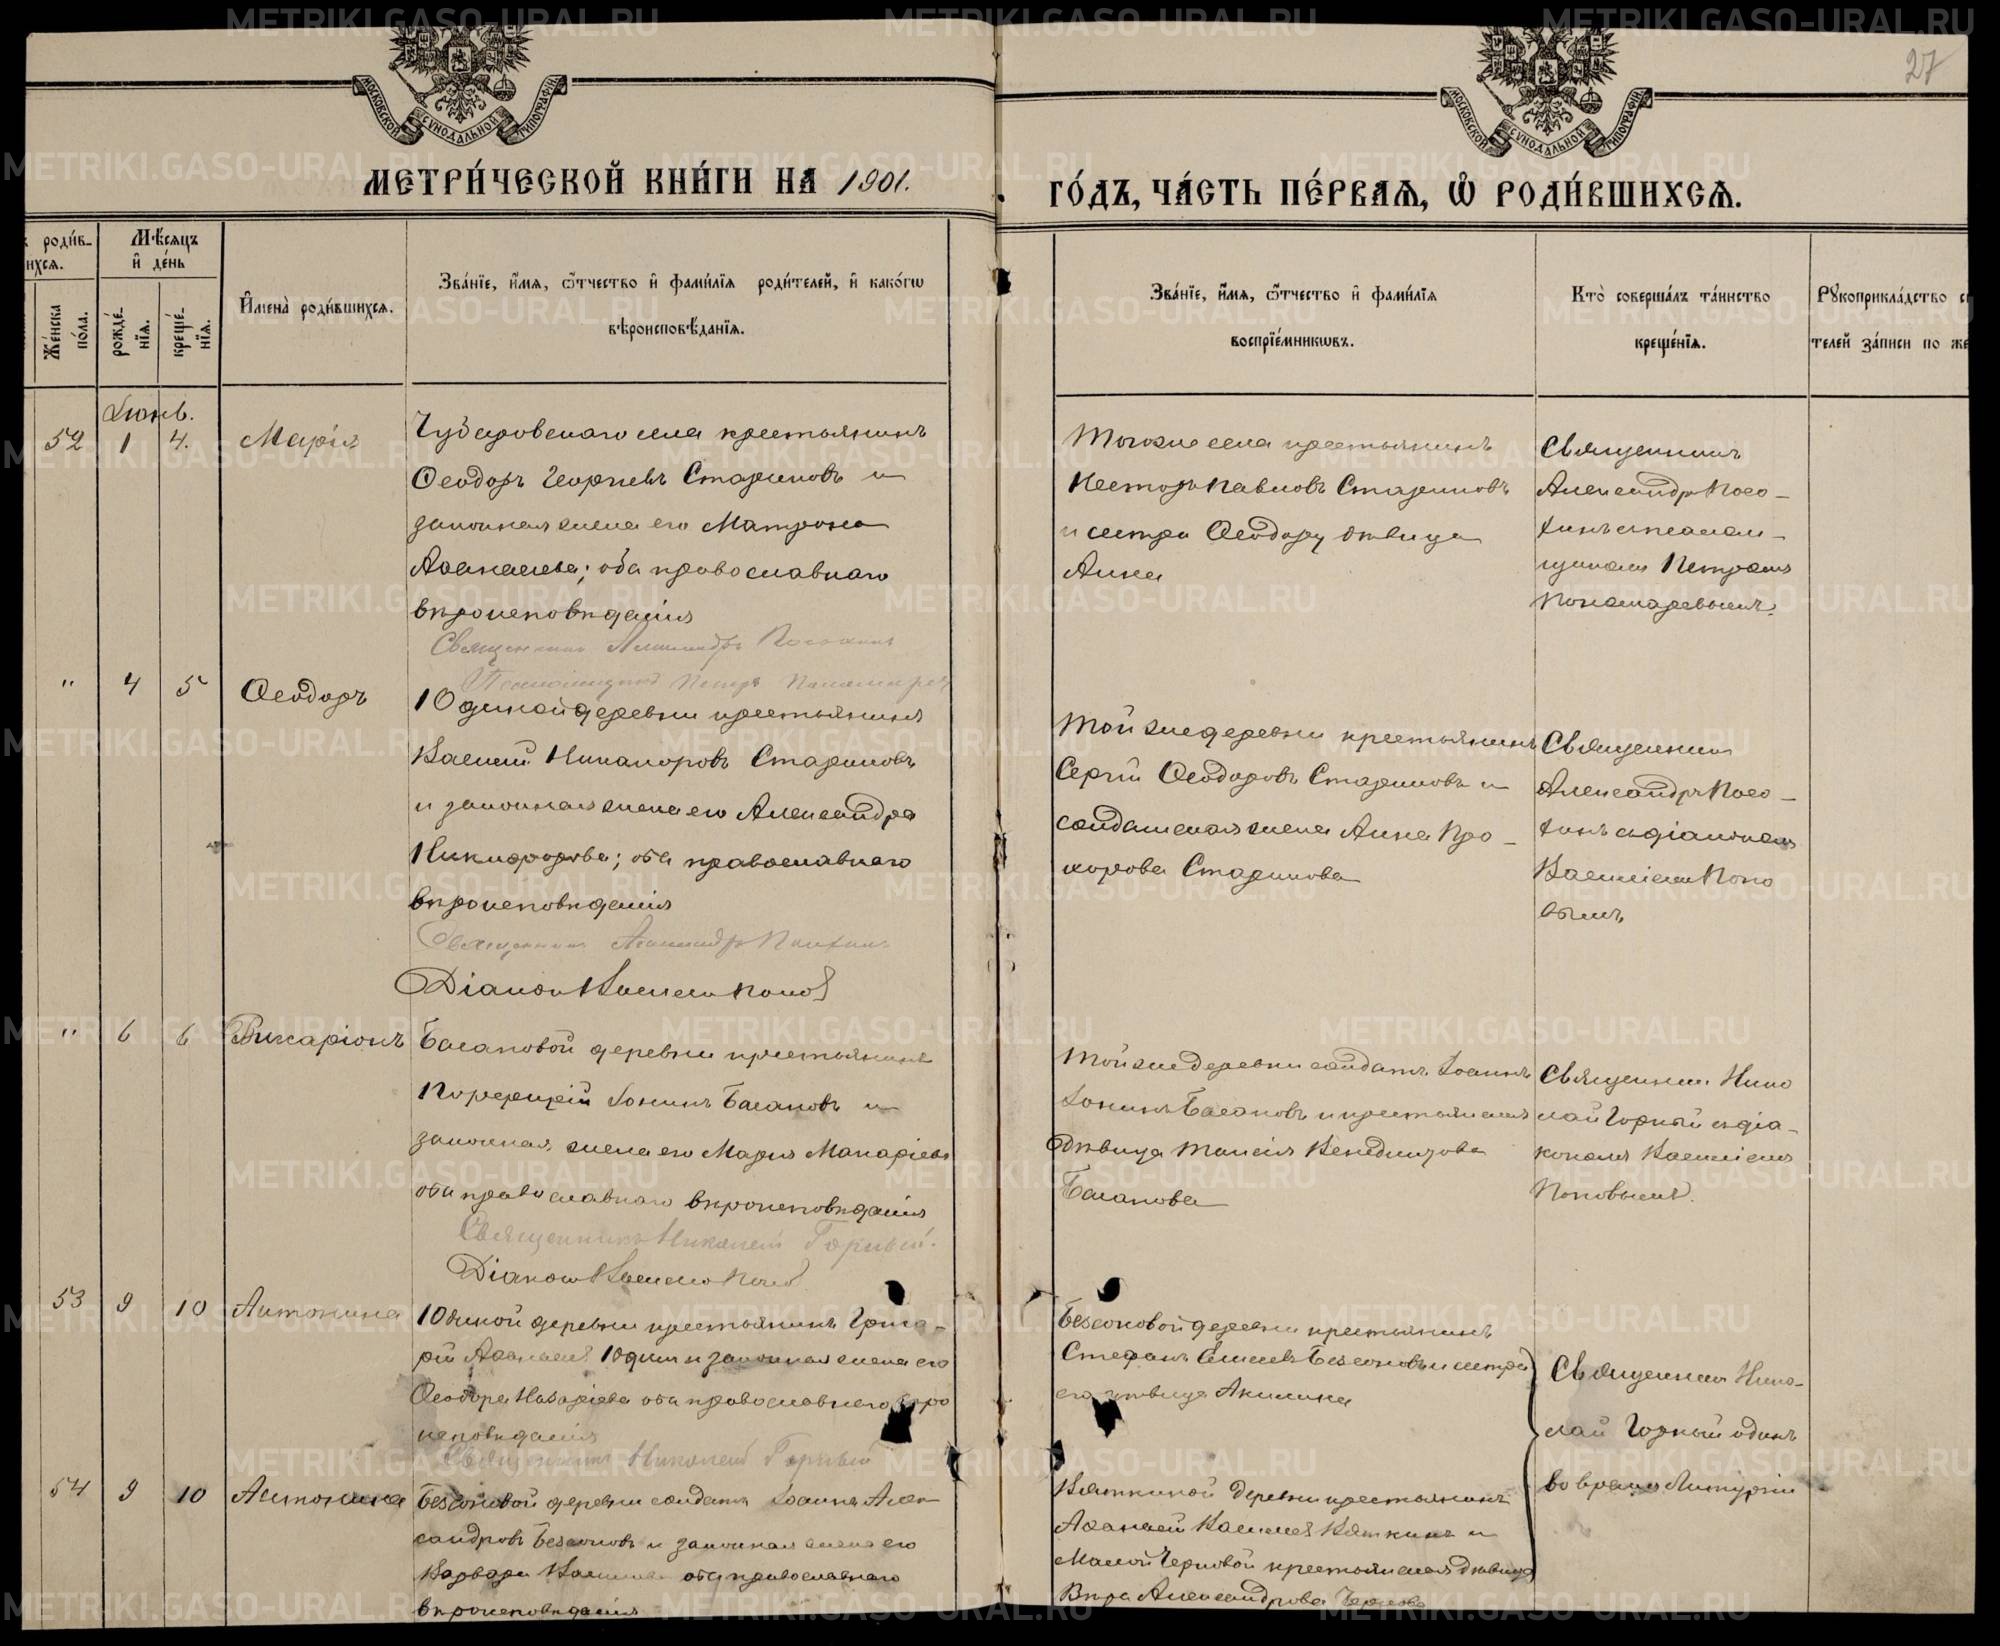 27
МОСКОВСКОЙ СѴНОДАЛЬНОЙ ТИПОГРАФІИ
МОСКОВСКОЙ СѴНОДАЛЬНОЙ ТИПОГРАФІИ
МЕТРИ́ЧЕСКОЙ КНИ́ГИ НА 1901.
ГО́ДЪ, ЧА́СТЬ ПЕ́РВАѦ, Ѽ РОДИ́ВШИХСѦ.
роди́в-
ихсѧ.
Же́нска по́ла.
Мѣ́сѧцъ и҆ де́нь
рожде́нїѧ.
креще́нїѧ.
И҆мена̀ роди́вшихсѧ.
Зва́нїе, и҆́мѧ, ѻ҆́тчество и҆ фами́лїѧ роди́телей, и҆ како́гѡ
вѣроисповѣ́данїѧ.
Зва́нїе, и҆́мѧ, ѻ҆́тчество и҆ фами́лїѧ
воспрїе́мникѡвъ.
Кто̀ соверша́лъ та́инство
креще́нїѧ.
Рꙋкоприкла́дство
телей за́писи по же
Іюнь.
52 1 4. Марія
Чубаровскаго села крестьянинъ
Ѳеодоръ Георгіевъ Стариковъ и
законная жена его Матрона
Аѳанасьева; оба православнаго
вѣроисповѣданія
Священникъ Александръ Посохинъ
Псаломщикъ Петръ Пономарев
Тогоже села крестьянинъ
Несторъ Павловъ Стариковъ
и сестра Ѳеодору дѣвица
Анна
Священникъ
Александръ Посо-
хинъ съ псалом-
щикомъ Петромъ
Пономаревымъ.
" 4 5 Ѳеодоръ
Юдиной деревни крестьянинъ
Василій Никаноровъ Стариковъ
и законная жена его Александра
Никифорова; оба православнаго
вѣроисповѣданія
Священникъ Александръ Посохинъ
Діаконъ Василій Попов
Той же деревни крестьянинъ
Сергій Ѳеодоровъ Стариковъ и
солдатская жена Анна Про-
хорова Старикова
Священникъ
Александръ Посо-
хинъ съ діакономъ
Василіемъ Попо
вымъ
" 6 6 Виссаріонъ
Басановой деревни крестьянинъ
Порфирій Іонинъ Басановъ и
законная жена его Марія Макаріева
оба православнаго вѣроисповѣданія
Священникъ Николай Горный.
Діаконъ Василій Попов
Той же деревни солдатъ Іоаннъ
Іонинъ Басановъ и крестьянская
дѣвица Таисія Венедиктова
Басанова
Священникъ Нико
лай Горный съ діа-
кономъ Василіемъ
Поповымъ.
53 9 10 Антонина
Юдиной деревни крестьянинъ Григо-
рій Аѳанасьев Юдинъ и законная жена его
Ѳеодора Назаріева оба православнаго вѣро
исповѣданія
Священникъ Николай Горный
Безсоновой деревни крестьянинъ
Стефанъ Безсоновъ и сестра
его дѣвица Акилина
Священникъ Нико-
лай Горный одинъ
во время Литургіи
54 9 10 Антонина
Безсоновой деревни солдатъ Іоаннъ Алек
сандровъ Безсоновъ и законная жена его
Варвара Васильева оба православнаго
вѣроисповѣданія
Вяткиной деревни крестьянинъ
Аѳанасій Васильев Вяткинъ и
Малой Черновой крестьянская дѣвица
Вѣра Александрова Чернова